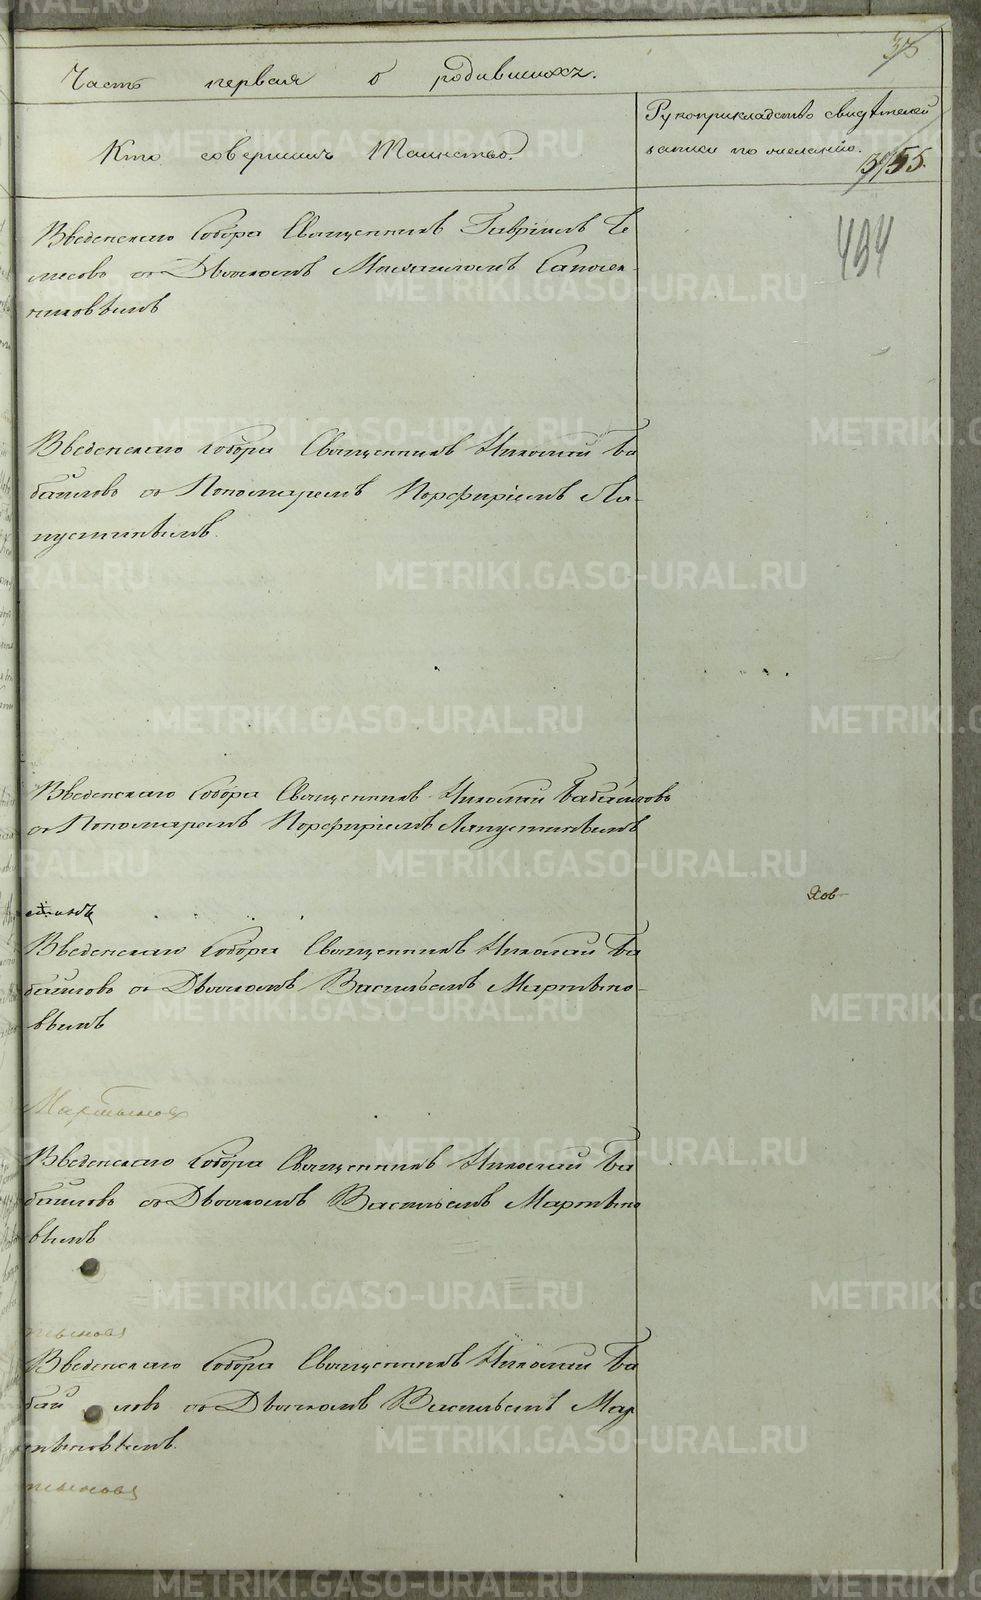 37
Часть первая о родившихся.
Кто совершилъ Таинство.
Рукоприкладство свидѣтелей
записи по желанію.
55.
494
Введенскаго Собора Священникъ Гавріилъ
съ Дьячкомъ Михаиломъ Сапожн-
иковымъ
Введенскаго собора Священникъ Николай Ба
байловъ съ Пономаремъ Порфиріемъ Ла-
пустинымъ.
Введенскаго Собора Священникъ Николай Бабайловъ
съ Пономаремъ Порфиріемъ
Яков
Введенскаго Собора Священникъ Николай Ба
байловъ съ Дьячкомъ Васильемъ Мартыно-
вымъ
Мартынов
Введенскаго Собора Священникъ Николай Ба
байловъ съ Дьячкомъ Васильемъ Мартыно
вымъ
тынова
Введенскаго Собора Священникъ Николай Ба
бай ловъ съ Дьячкомъ Васильемъ Мар
тыновымъ.
тынова
METRIKI.GASO-URAL.RU